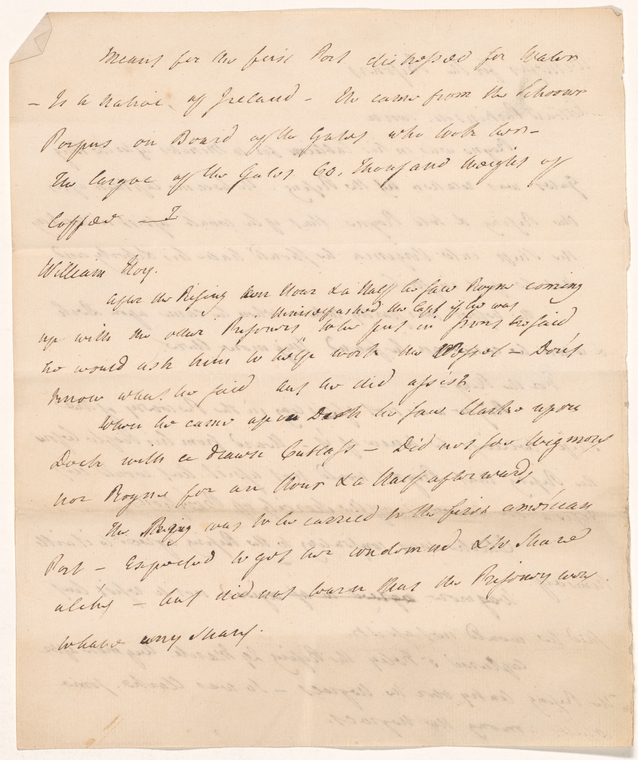 Meant for the first Port distressed for Water
– Is a native of Ireland – He came from the Schooner
on Board of the Gates who took her –
The Cargoe of the Gates 60, Thousand Weight of
Coffee –
William Hoy.
after the Rising an Hour & a Half he saw Royne coming
himself asked the Capt if he was
up with the other Prisoners to be put in Irons he said
he would ask him to help work the Vessel – Don't
know what he said but he did assist.
When he came upon Deck he saw Clarke upon
Deck with a drawn Cutlass – Did not see Wigmore
nor Royne for an Hour & a Half afterwards
The was to be carried to the first american
Port – Expected to get her condemned & to share
alike – but did not learn that the Prisoners were
to have any share.